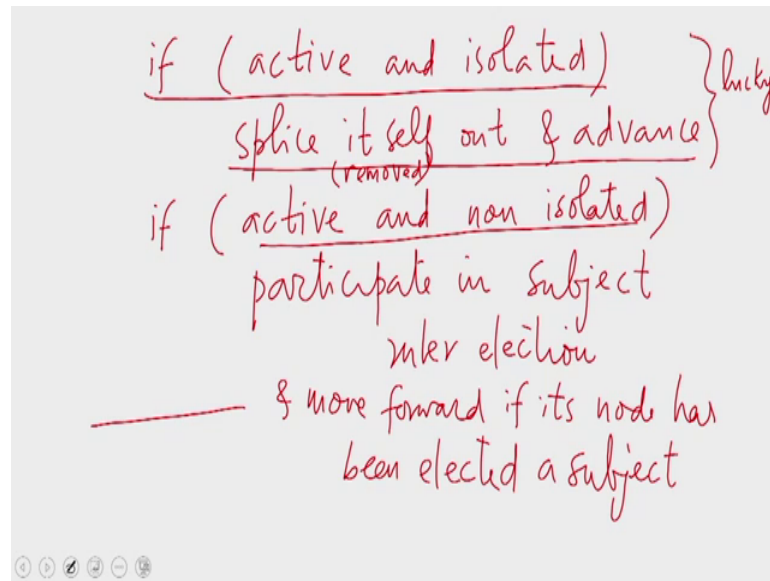 if (active and isolated)
splice itself out & advance } lucky
(removed)
if (active and non isolated)
participate in subject
election
& move forward if its node has
been elected a subject